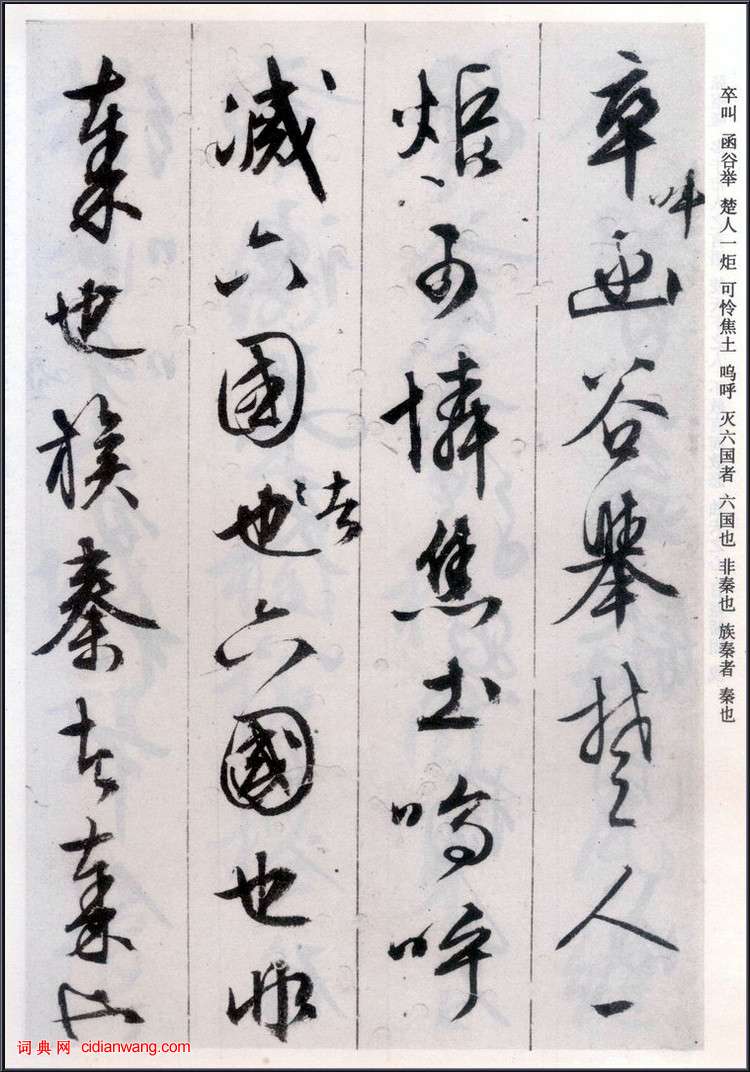 卒叫 函谷举 楚人一炬 可怜焦土 呜呼 灭六国者 六国也 非秦也 族秦者 秦也
卒叫函谷舉楚人一
炬可憐焦土嗚呼
滅六國也者六國也非
秦也族秦者秦也
词典网 cidianwang.com